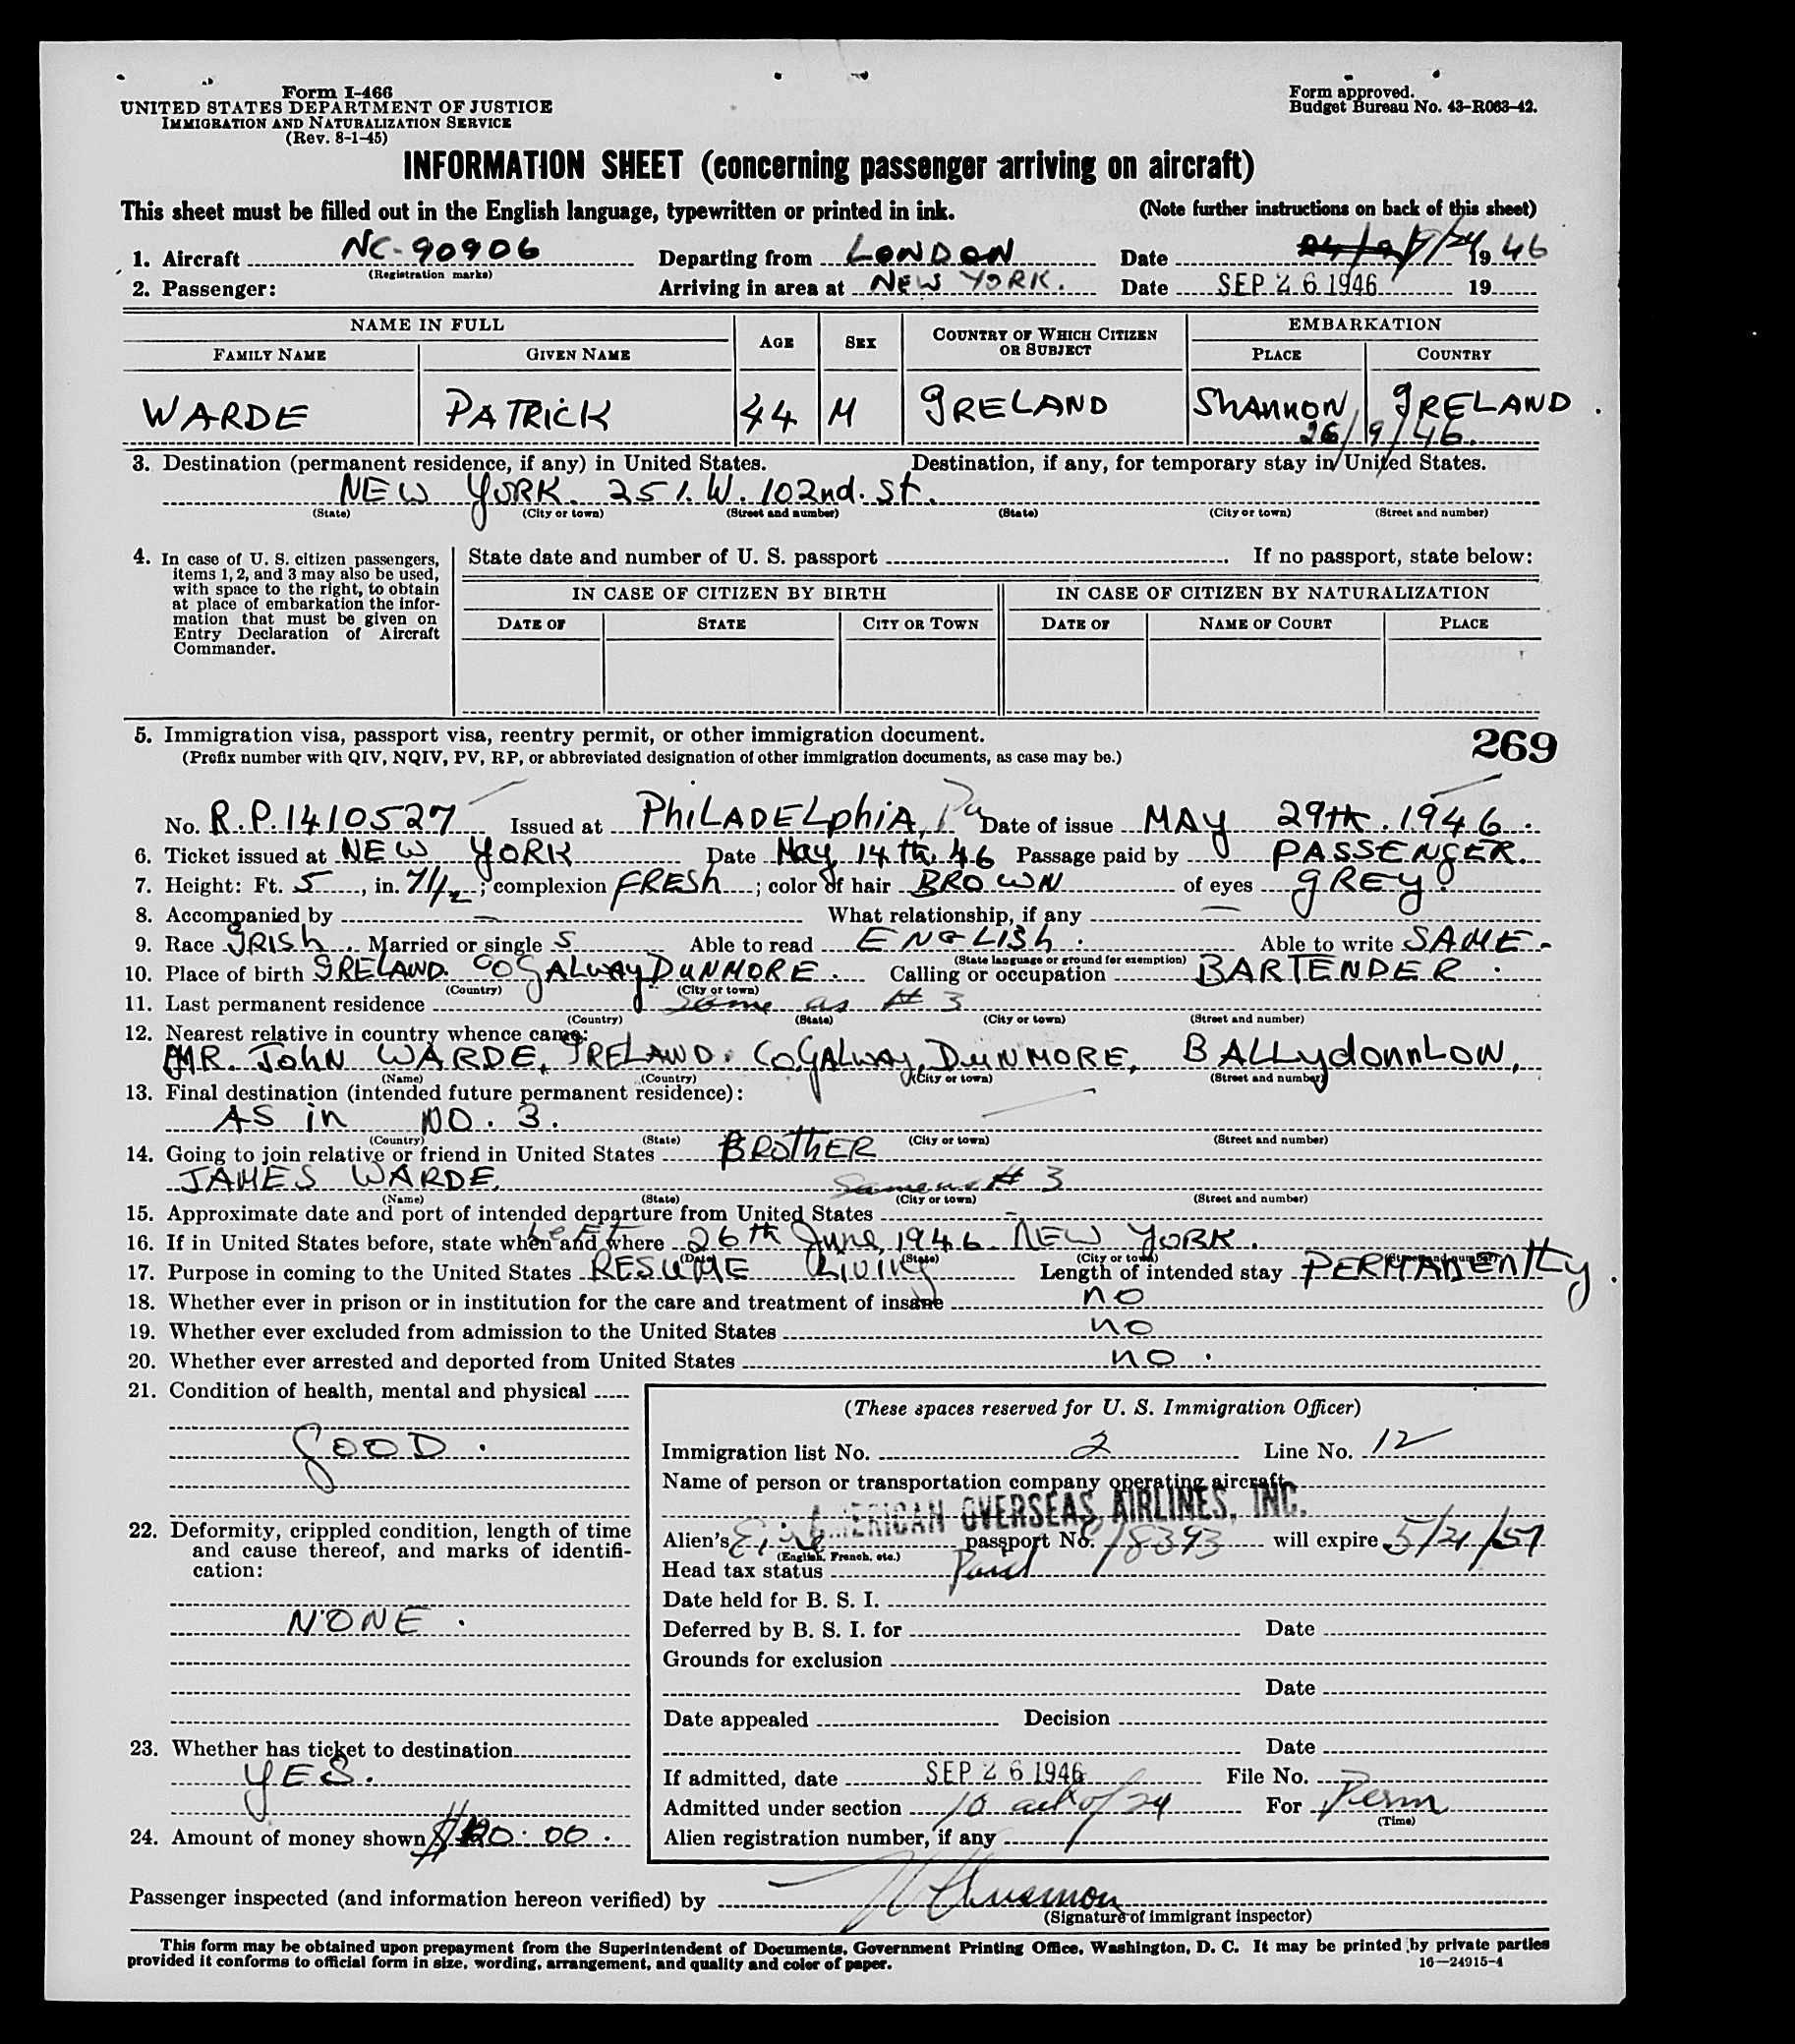 Form I-466
UNITED STATES DEPARTMENT OF JUSTICE
IMMIGRATION AND NATURALIZATION SERVICE
(Rev. 8-1-45)
Form approved.
Budget Bureau No. 43-R063-42.
INFORMATION SHEET (concerning passenger arriving on aircraft)
This sheet must be filled out in the English language, typewritten or printed in ink. (Note further instructions on back of this sheet)
1. Aircraft NC-90906 Departing from LONDON Date 9/24 1946
(Registration marks)
2. Passenger: Arriving in area at NEW YORK. Date SEP 26 1946 19
NAME IN FULL AGE SEX COUNTRY OF WHICH CITIZEN OR SUBJECT EMBARKATION
FAMILY NAME GIVEN NAME PLACE COUNTRY
WARDE PATRICK 44 M IRELAND SHANNON IRELAND.
26/9/46.
3. Destination (permanent residence, if any) in United States. Destination, if any, for temporary stay in United States.
NEW YORK. 251. W. 102nd. St.
(State) (City or town) (Street and number) (State) (City or town) (Street and number)
4. In case of U. S. citizen passengers, items 1, 2, and 3 may also be used, with space to the right, to obtain at place of embarkation the information that must be given on Entry Declaration of Aircraft Commander.
State date and number of U. S. passport If no passport, state below:
IN CASE OF CITIZEN BY BIRTH IN CASE OF CITIZEN BY NATURALIZATION
DATE OF STATE CITY OR TOWN DATE OF NAME OF COURT PLACE
5. Immigration visa, passport visa, reentry permit, or other immigration document. 269
(Prefix number with QIV, NQIV, PV, RP, or abbreviated designation of other immigration documents, as case may be.)
No. R.P. 1410527 Issued at PHILADELPHIA, Pa Date of issue MAY 29th. 1946.
6. Ticket issued at NEW YORK Date May 14th. 46 Passage paid by PASSENGER.
7. Height: Ft. 5, in. 7 1/2; complexion FRESH; color of hair BROWN of eyes GREY.
8. Accompanied by — What relationship, if any —
9. Race IRISH. Married or single S Able to read ENGLISH. Able to write SAME.
(State language or ground for exemption)
10. Place of birth IRELAND. CO GALWAY DUNMORE. Calling or occupation BARTENDER.
(Country) (City or town)
11. Last permanent residence Same as # 3
(Country) (State) (City or town) (Street and number)
12. Nearest relative in country whence came:
MR. JOHN WARDE, IRELAND. CO. GALWAY, DUNMORE, BALLYdonnLOW,
(Name) (Country) (City or town) (Street and number)
13. Final destination (intended future permanent residence):
AS in NO. 3.
(Country) (State) (City or town) (Street and number)
14. Going to join relative or friend in United States BROTHER
JAMES WARDE. Same as # 3
(Name) (State) (City or town) (Street and number)
15. Approximate date and port of intended departure from United States –
16. If in United States before, state when and where Left 26th June, 1946. NEW YORK.
(Date) (State) (City or town) (Street and number)
17. Purpose in coming to the United States RESUME LIVING Length of intended stay PERMANENTLY.
18. Whether ever in prison or in institution for the care and treatment of insane no
19. Whether ever excluded from admission to the United States no
20. Whether ever arrested and deported from United States no.
21. Condition of health, mental and physical
GOOD.
22. Deformity, crippled condition, length of time and cause thereof, and marks of identification:
NONE.
23. Whether has ticket to destination
YES.
24. Amount of money shown $120.00.
(These spaces reserved for U. S. Immigration Officer)
Immigration list No. 2 Line No. 12
Name of person or transportation company operating aircraft
AMERICAN OVERSEAS AIRLINES, INC.
Alien's Eire passport No. 18393 will expire 5/21/51
(English, French, etc.)
Head tax status Paid
Date held for B. S. I.
Deferred by B. S. I. for Date
Grounds for exclusion
Date
Date appealed Decision
Date
If admitted, date SEP 26 1946 File No.
Admitted under section 10 act of 24 For Perm
(Time)
Alien registration number, if any
Passenger inspected (and information hereon verified) by
(Signature of immigrant inspector)
This form may be obtained upon prepayment from the Superintendent of Documents, Government Printing Office, Washington, D. C. It may be printed by private parties
provided it conforms to official form in size, wording, arrangement, and quality and color of paper. 16—24915-4